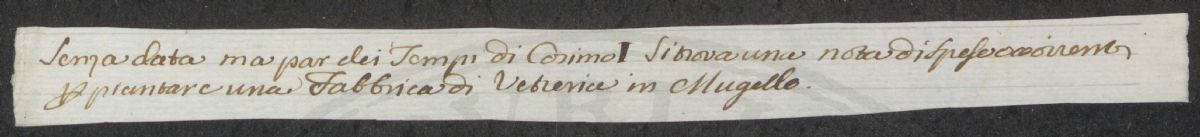 Senza data ma par dei Tempi di Cosimo I si trova una nota di spese occorrenti
p piantare una Fabbrica di Vetrerie in Mugello.